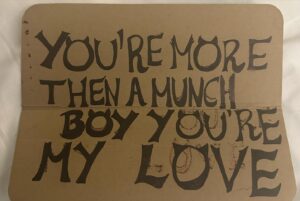 YOU'RE MORE
THEN A MUNCH
BOY YOU'RE
MY LOVE